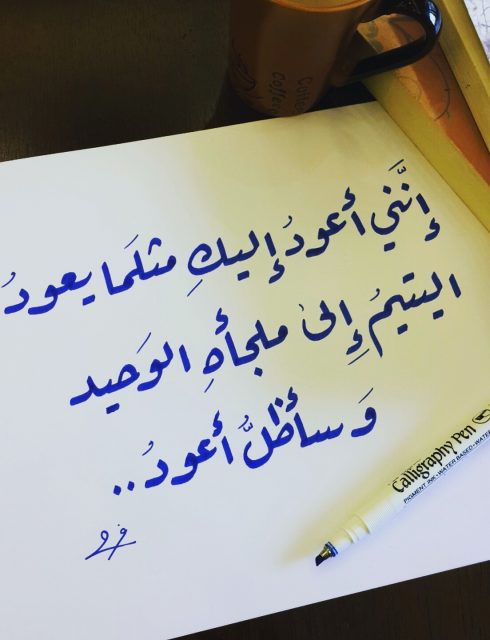 إنَّني أعودُ إليكِ مثلَما يعودُ
اليتيمُ إِلىٰ ملجأهِ الوَحيد
وَسأظلُّ أعودُ..
Calligraphy Pen
PIGMENT INK-WATER BASED-WATER